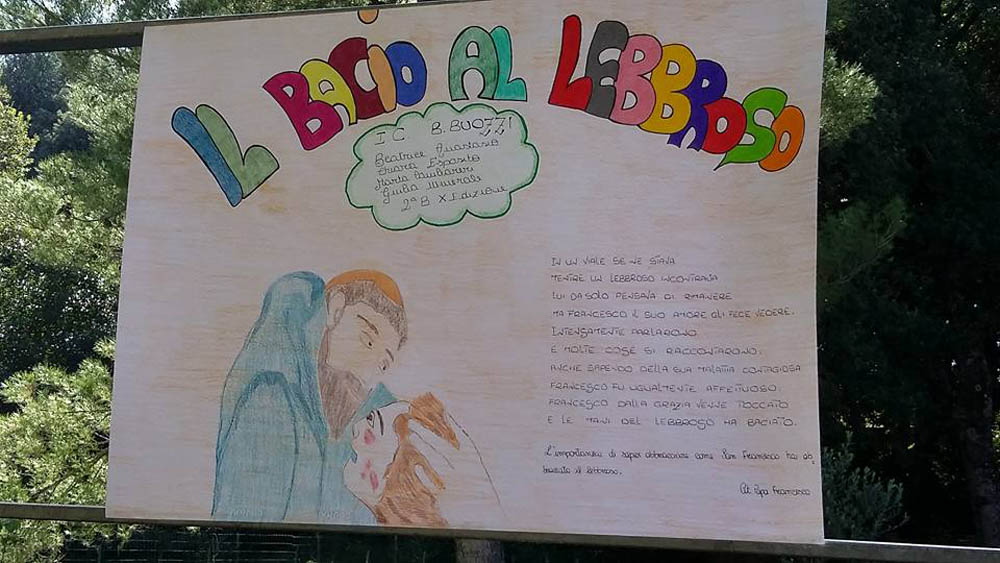 IL BACIO AL LEBBROSO
IC B. BUOZZI
Beatrice
Chiara Esposito
Marta
Giulia
2ªB XI Edizione
IN UN VIALE SE NE STAVA
MENTRE UN LEBBROSO INCONTRAVA
LUI DA SOLO PENSAVA DI RIMANERE
MA FRANCESCO IL SUO AMORE GLI FECE VEDERE.
INTENSAMENTE PARLARONO
E MOLTE COSE SI RACCONTARONO;
ANCHE SAPENDO DELLA SUA MALATTIA CONTAGIOSA
FRANCESCO FU UGUALMENTE AFFETTUOSO:
FRANCESCO DALLA GRAZIA VENNE TOCCATO
E LE MANI DEL LEBBROSO HA BACIATO.
L'importanza di saper abbracciare come San Francesco ha ab
bracciato il lebbroso.
Cit. Papa Francesco